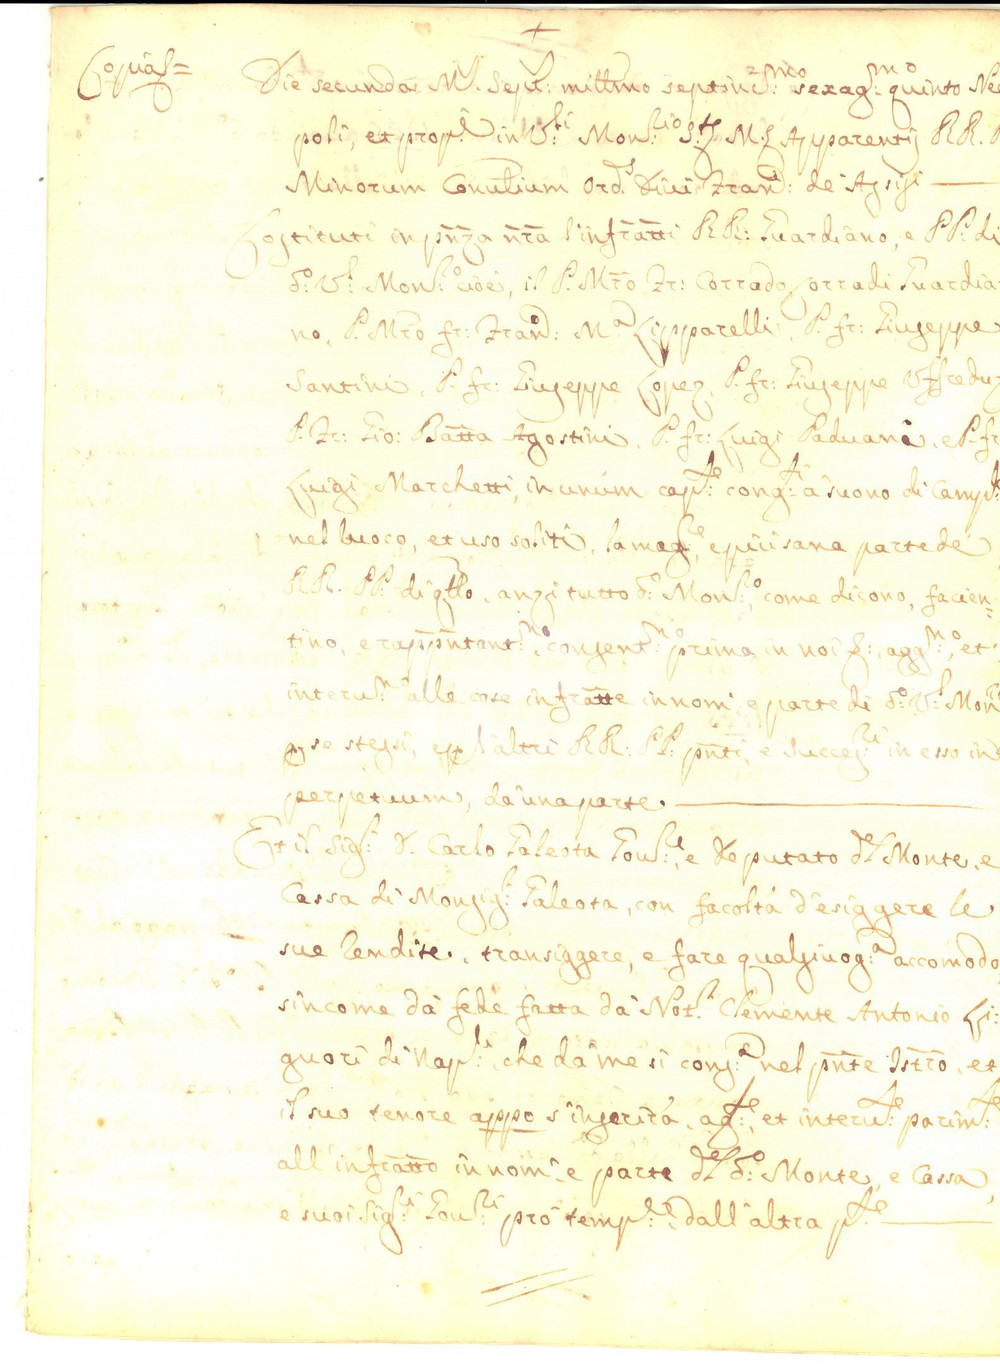 Copia=
Die secunda M.s Sept.s millmo septinc.mo sexag.mo quinto Nea
poli, et prop.e in V.ti Mon.rio S.ti M.s Apparentis RR. P
Minorum Con.lium Ord.s Divi Fran.i: de Assisi
Costituti in pñza ñra l'infratti RR: Guardiano, e PP: di
d.o V.l Mon.o cioè, il P. Mro Fr: Corrado Corradi Guardia
no, P. Mro fr: Fran.o: M.a Lipparelli, P. fr: Giuseppe
Santini, P. fr: Giuseppe Lopez, P. fr: Giuseppe Uffreduz
P. Fr: Gio: Batta Agostini, P. fr: Luigi Paduani, e P. fr
Luigi Marchetti, in unum cap.te cong.ti a suono di Camp.le
nel luoco, et uso soliti, la mag.e, e più sana parte de
RR. PP. di qllo, anzi tutto d.o Mon.o, come dicono, facien=
tino, e rappñtant.no, consent.no prima in noi &, agg.no, et
interv.no alle cose infratte in nom.e, e parte di d.o V.l Mon.
p se stessi, e p l'altri RR: PP: pñti, e success.ri in esso in
perpetuum, da una parte.
Et il Sig.r D. Carlo Galeota Gov.re, e Deputato d.l Monte, e
Cassa di Monsig.r Galeota, con facoltà d'esiggere le
sue rendite, transiggere, e fare qualsivog.a accomodo
sincome da fede fatta da Not.r Clemente Antonio Li:
guori di Nap.li, che da me si cons.a nel pñte Istro, et
il suo tenore appo s'ingerirà, ag.te, et interv.te parim.te
all'infratto in nom.e e parte d.l d.o Monte, e Cassa,
e suoi Sig.ri Gov.ri pro temp.e, dall'altra p.te